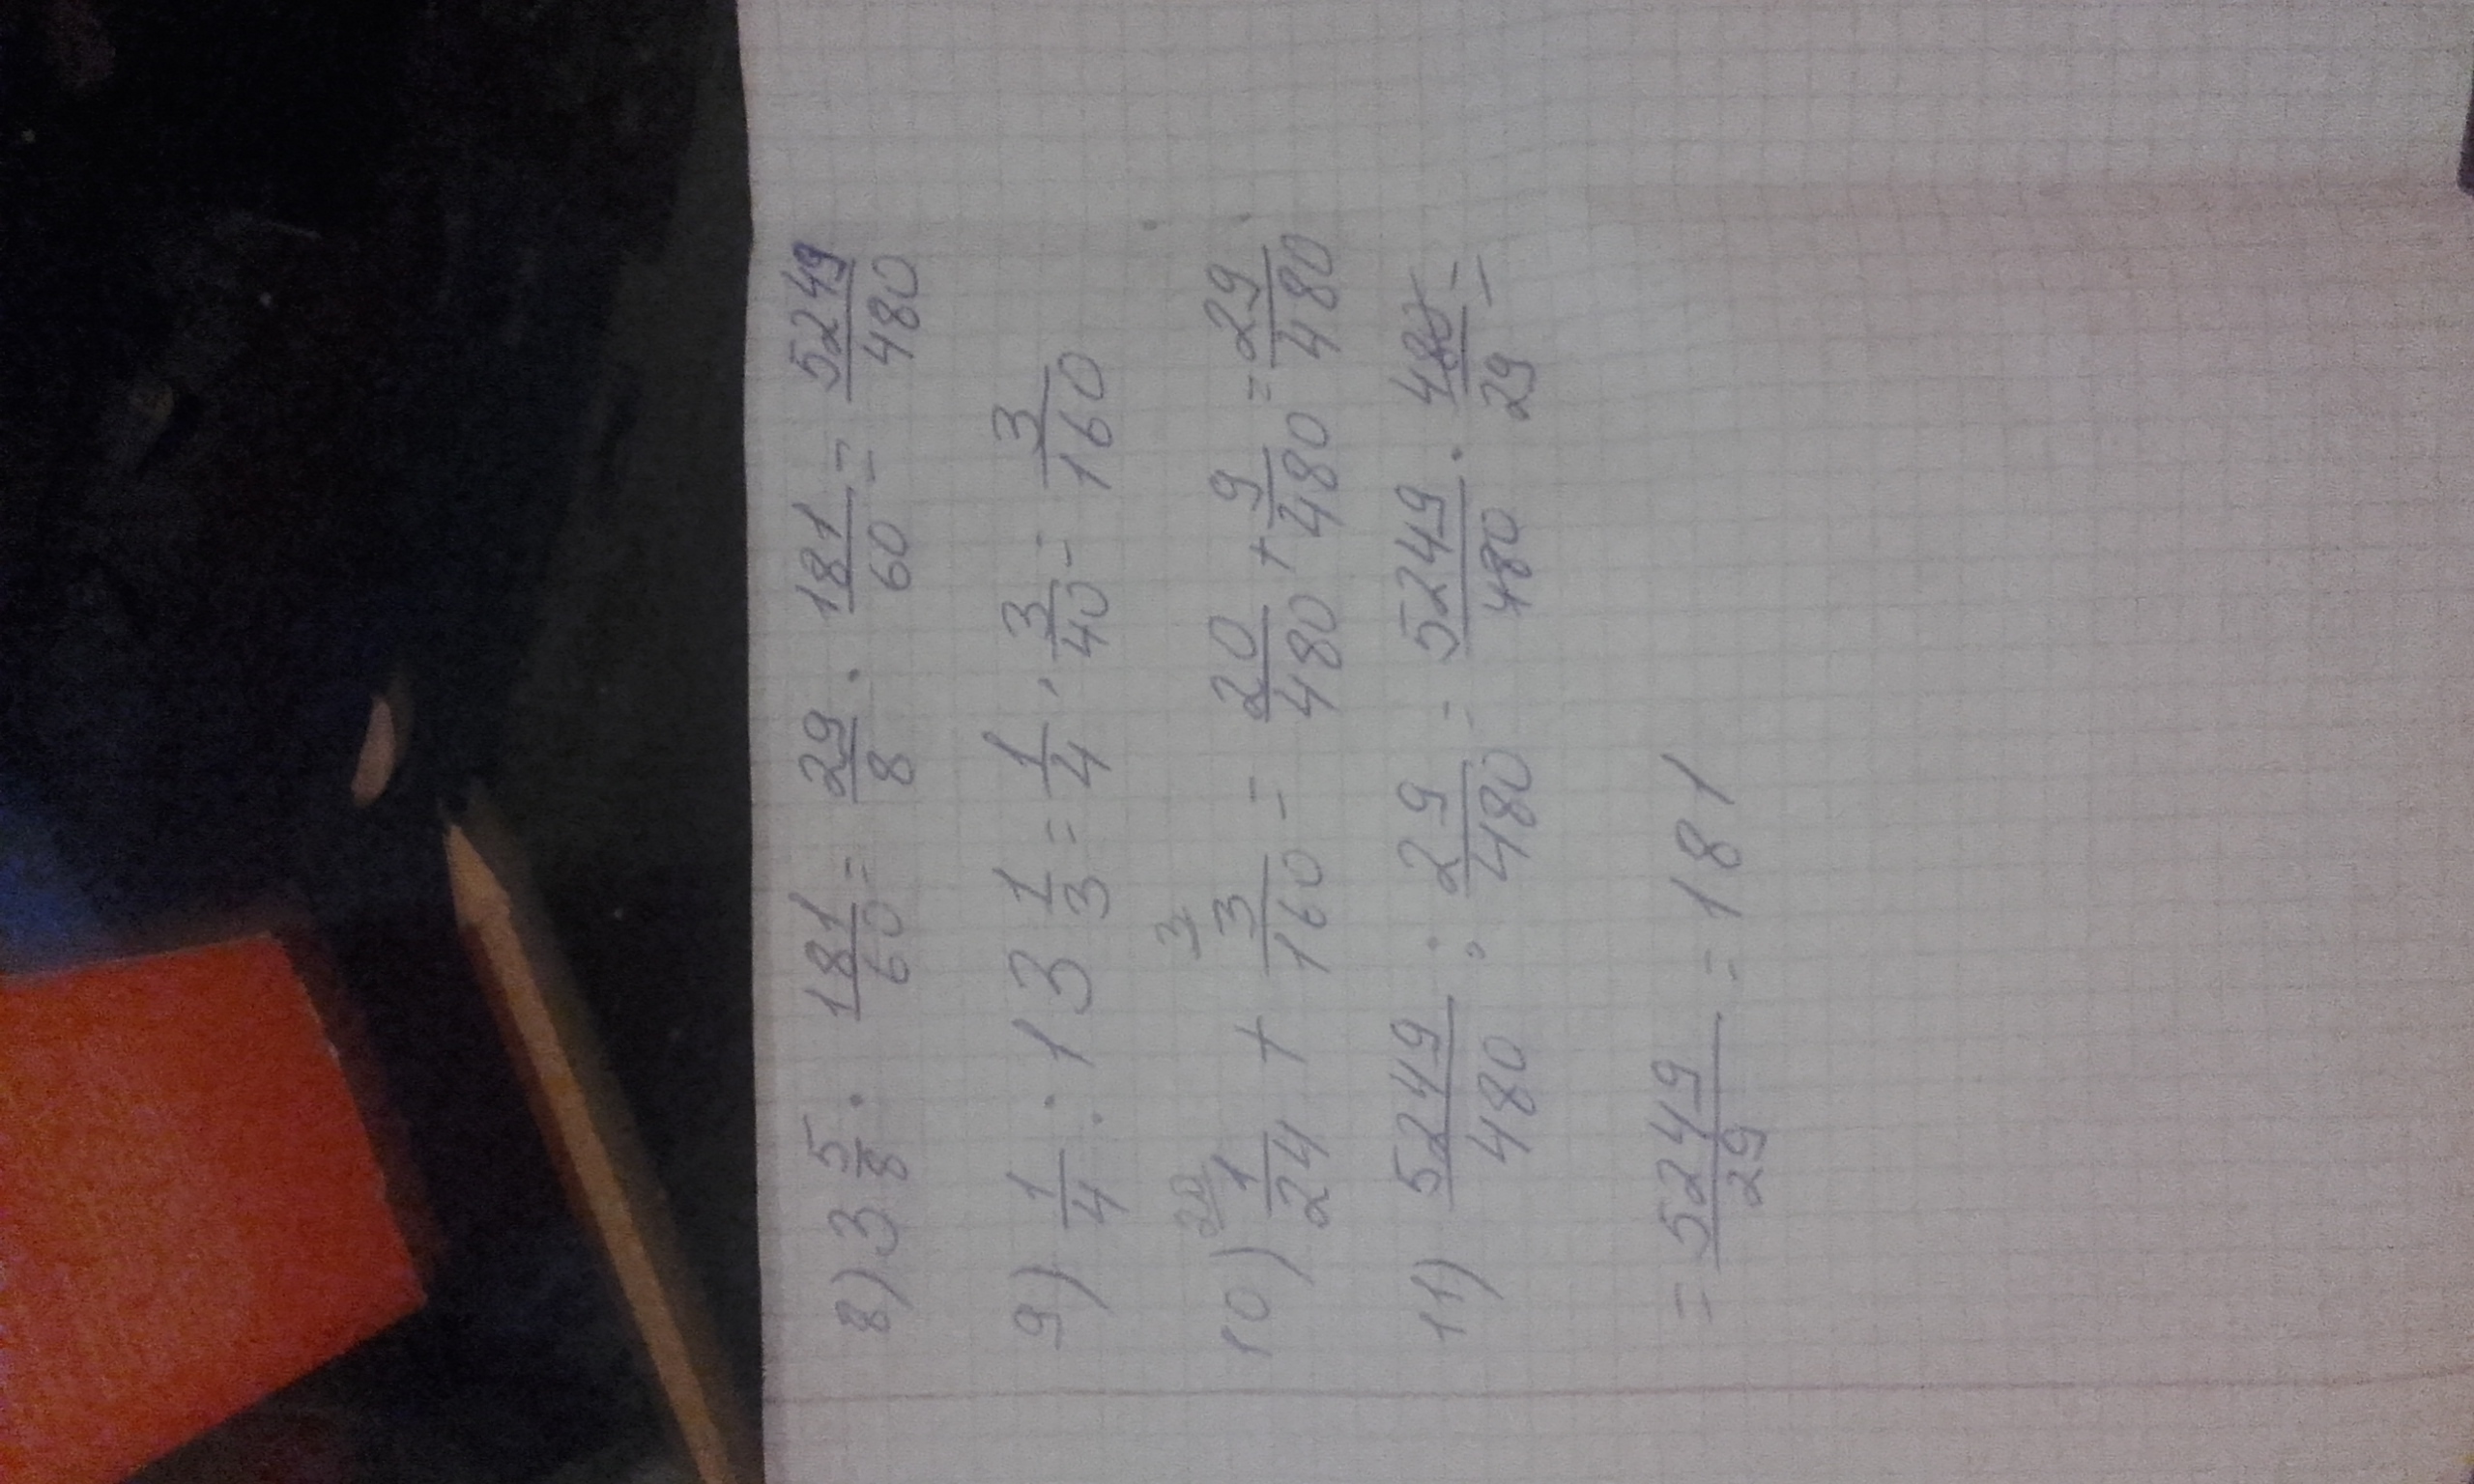 8) 3 5/8 · 181/60 = 29/8 · 181/60 = 5249/480
9) 1/4 : 13 1/3 = 1/4 · 3/40 = 3/160
20 3
10) 1/24 + 3/160 = 20/480 + 9/480 = 29/480
11) 5249/480 : 29/480 = 5249/480 · 480/29 =
= 5249/29 = 181